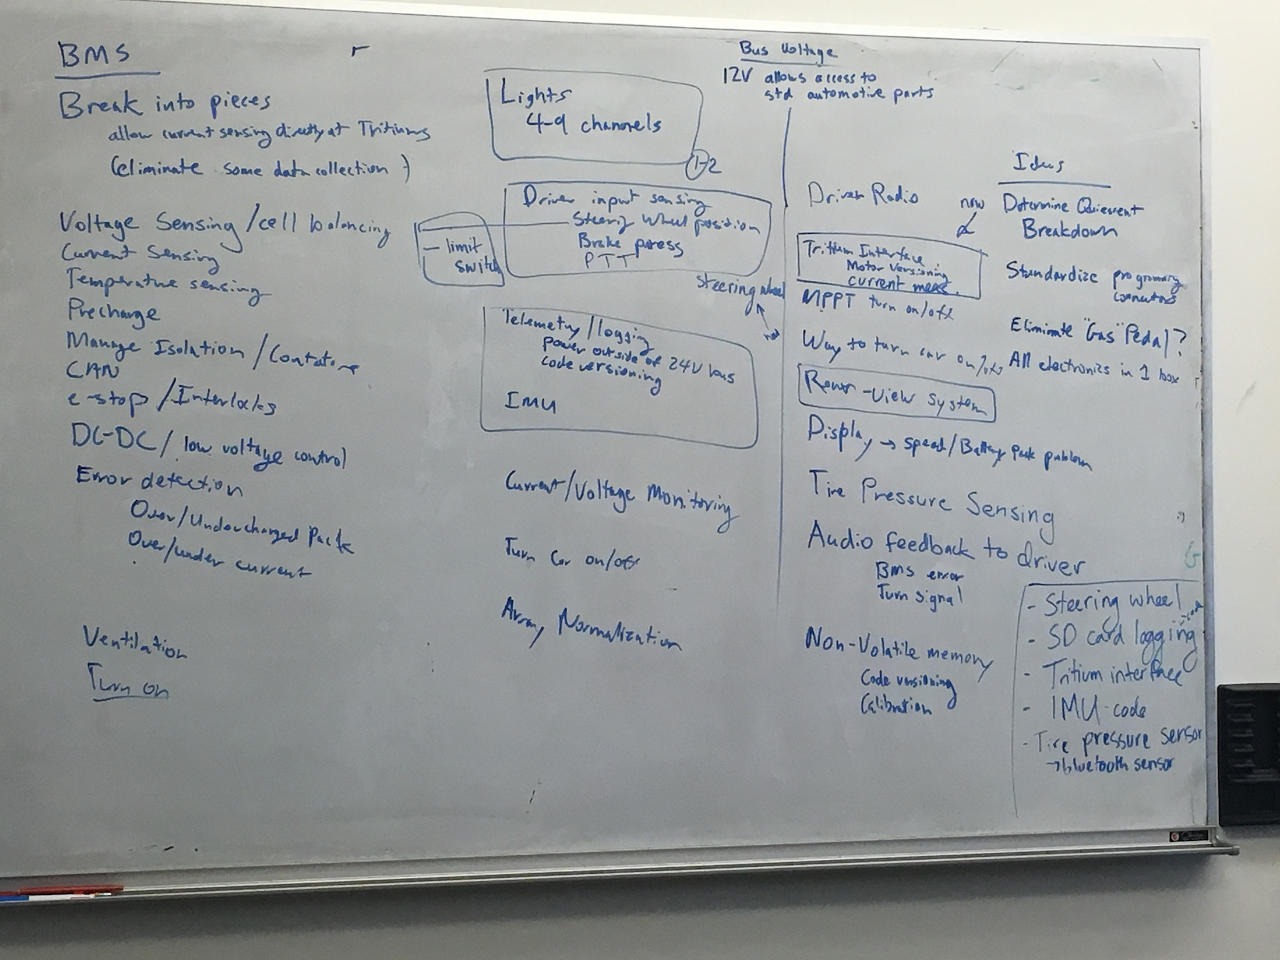 BMS
Break into pieces
allow current sensing directly at Tritiums
(eliminate some data collection?)
Voltage Sensing/cell balancing
Current Sensing
Temperature sensing
Precharge
Manage Isolation/Contactors
CAN
e-stop/Interlocks
DC-DC/low voltage control
Error detection
Over/Undercharged Pack
Over/under current
Ventilation
Turn on
Lights
4-9 channels
1-2
Driver input sensing
Steering Wheel position
Brake press
PTT
- limit
switch
Steering wheel
Telemetry/logging
power outside of 24V bus
code versioning
IMU
Current/Voltage Monitoring
Turn Car on/off
Array Normalization
Bus Voltage
12V allows access to
std automotive parts
Driver Radio
Tritium Interface
Motor versioning
current meas.
MPPT turn on/off
Way to turn car on/off
Rear-view system
Display → speed/Battery pack problem
Tire Pressure Sensing
Audio feedback to driver
BMS error
Turn signal
Non-Volatile memory
Code versioning
Calibration
Ideas
new
Determine Quiescent
Breakdown
Standardize programming
connectors
Eliminate "Gas" Pedal?
All electronics in 1 box
- Steering wheel
- SD card logging
- Tritium interface
- IMU code
- Tire pressure sensor
→ bluetooth sensor